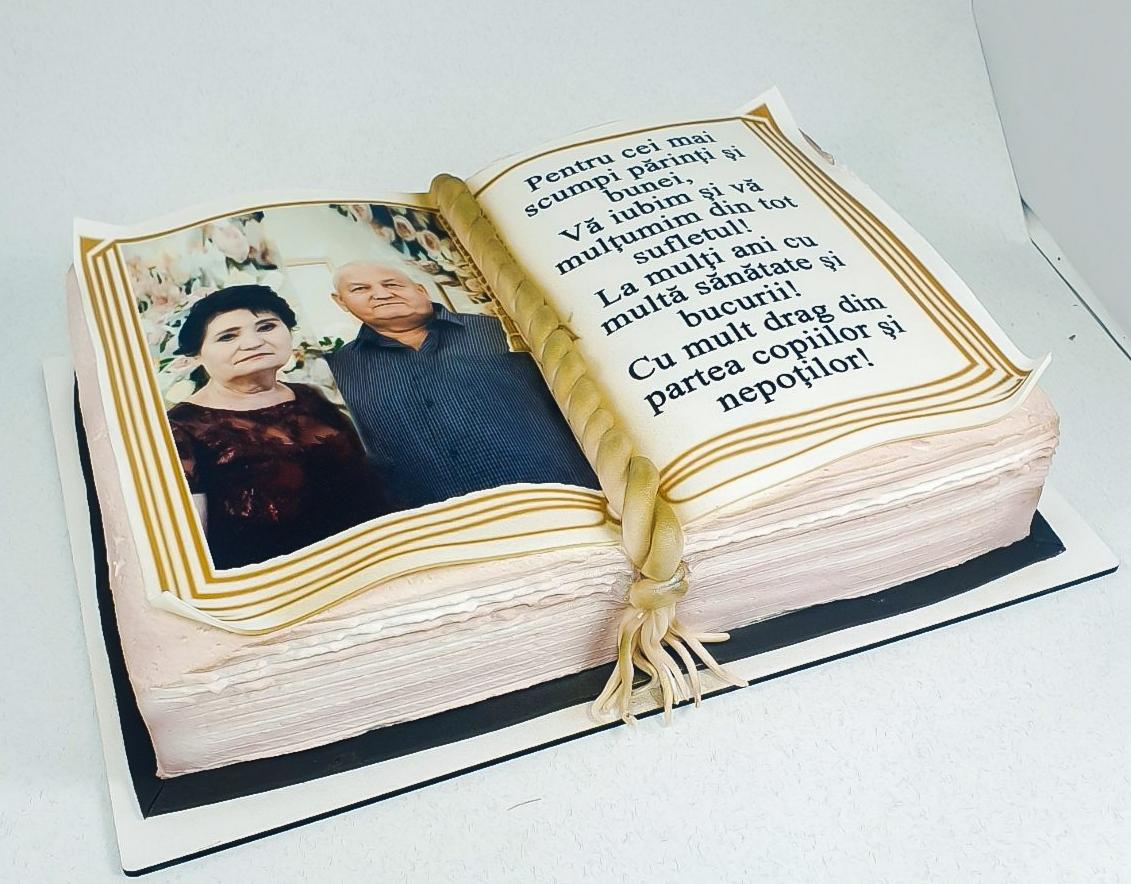 Pentru cei mai
scumpi părinţi şi
bunei,
Vă iubim şi vă
mulţumim din tot
sufletul!
La mulţi ani cu
multă sănătate şi
bucurii!
Cu mult drag din
partea copiilor şi
nepoţilor!